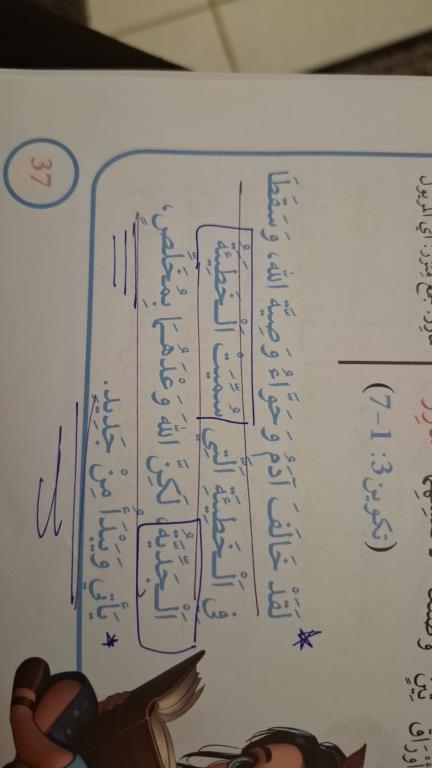 (تكوين 3: 1-7)
لَقَدْ خَالَفَ آدَمُ وَحَوَّاءُ وَصِيَّةَ اللهِ، وَسَقَطَا
فِي الْخَطِيئَةِ الَّتِي سُمِّيَتْ الْخَطِيئَةُ
الْجَدِّيَّةُ، لَكِنَّ اللهَ وَعَدَهُمَا بِمُخَلِّصٍ،
يَأْتِي وَيَبْدَأُ مِنْ جَدِيدٍ.
37